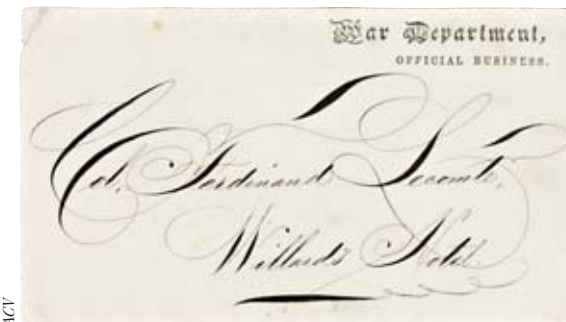 War Department,
OFFICIAL BUSINESS.
Col. Ferdinand Lecomte,
Willards Hotel
ACV